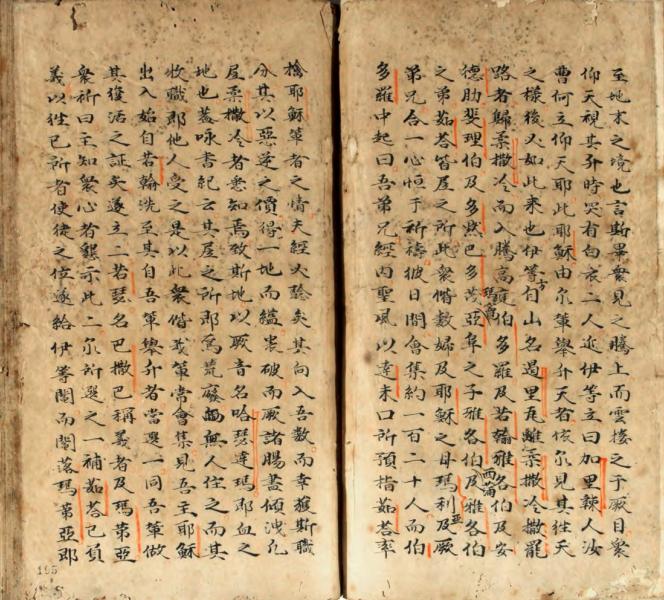 至地末之境也言斯畢衆見之騰上而雲接之于厥目衆
仰天視其升時哭有白衣二人近伊等立曰加里辣人汝
曹何立仰天耶此耶穌由尔輩舉升天者依尔見其往天
之樣後必如此來也伊等方自山名遏里瓦離柔撒冷撒罷
路者歸柔撒冷而入騰高庭伯多羅及若翰雅各伯及安
德肋斐理伯及多默巴多茂瑪竇亞阜之子雅各伯及西滿雅各伯
之弟茹荅皆居之所此衆偕数婦及耶穌之母瑪利亞及厥
弟兄合一心恒于祈禱彼日間會集約一百二十人而伯
多羅中起曰吾弟兄經内聖風以達未口所預指茹荅率
擒耶穌輩者之情夫經必驗矣其向入吾数而幸獲斯職
分其以惡逆之價得一地而縊裳破而厥諸腸盡傾洩凡
居柔撒冷者悉知焉致斯地以厥音名哈瑟達瑪即血之
地也蓋咏書紀云其居之所即為荒廢無人住之而其
收職即他人受之是以此衆偕我輩常會集見吾主耶穌
出入始自若翰洗至其自吾輩舉升者當選一同吾輩做
其復活之証矣遂立二若瑟名巴撒巴稱義者及瑪第亞
衆祈曰主知衆心者懇示此二尔所選之一補茹荅已負
義以徃已所者使徒之位遂給伊等鬮而鬮落瑪第亞即